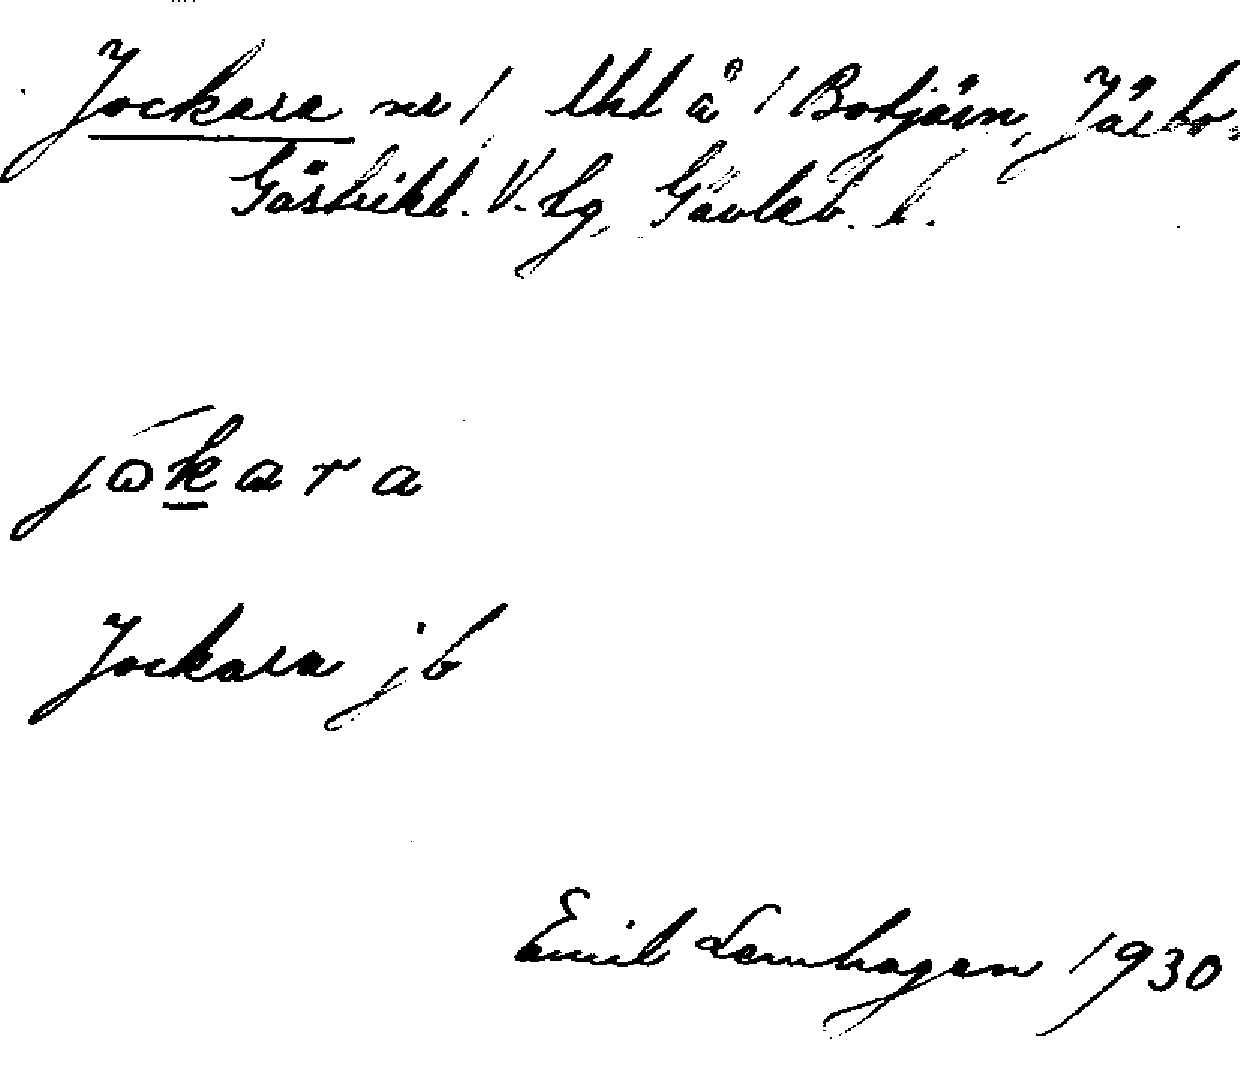 Jockara nr 1 Botjärn, Järbo.
Gästrikl. V. tg, Gävleb. l.
jɷkara
Jockara jb
Emil Lernhagen 1930